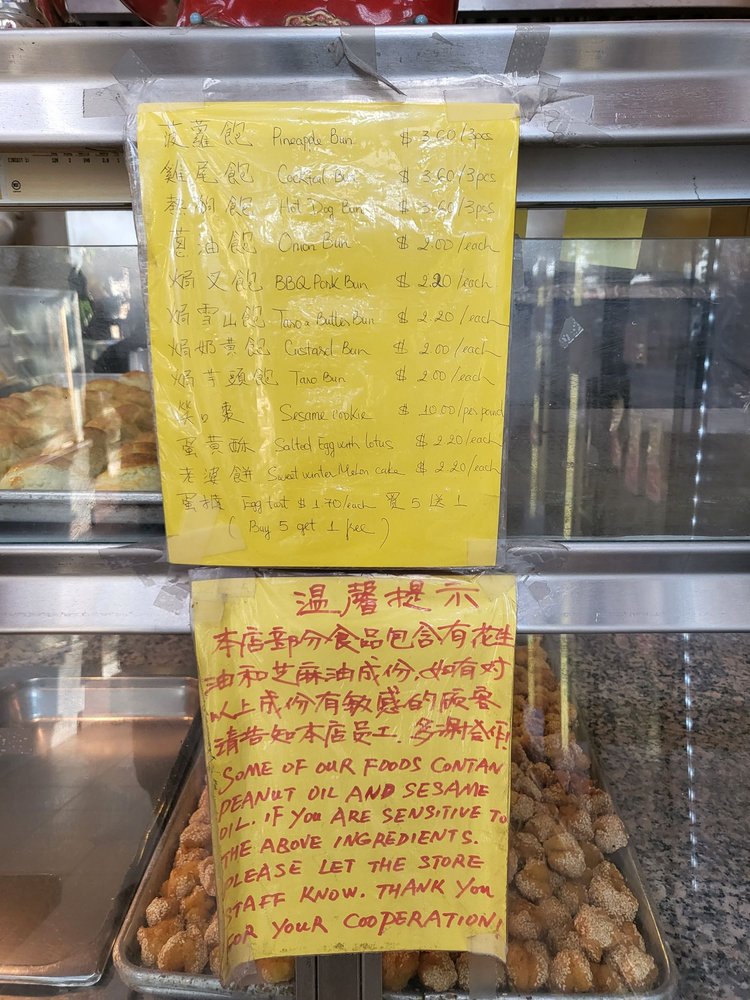 菠蘿飽 Pineapple Bun $3.60/3pcs
雞尾飽 Cocktail Bun $3.60/3pcs
熱狗飽 Hot Dog Bun $3.60/3pcs
蔥油飽 Onion Bun $2.00/each
焗叉飽 BBQ Pork Bun $2.20/each
焗雪山飽 Taro & Butter Bun $2.20/each
焗奶黄飽 Custard Bun $2.00/each
焗芋頭飽 Taro Bun $2.00/each
笑口棗 Sesame cookie $10.00/per pound
蛋黄酥 Salted Egg with lotus $2.20/each
老婆餅 Sweet winter Melon cake $2.20/each
蛋撻 Egg tart $1.70/each 買5送1
(Buy 5 get 1 free)
温馨提示
本店部分食品包含有花生
油和芝麻油成份.如有对
以上成份有敏感的顾客
请告知本店员工.多谢合作!
SOME OF OUR FOODS CONTAN
PEANUT OIL AND SESAME
OIL. IF YOU ARE SENSITIVE TO
THE ABOVE INGREDIENTS.
PLEASE LET THE STORE
STAFF KNOW. THANK YOU
FOR YOUR COOPERATION!